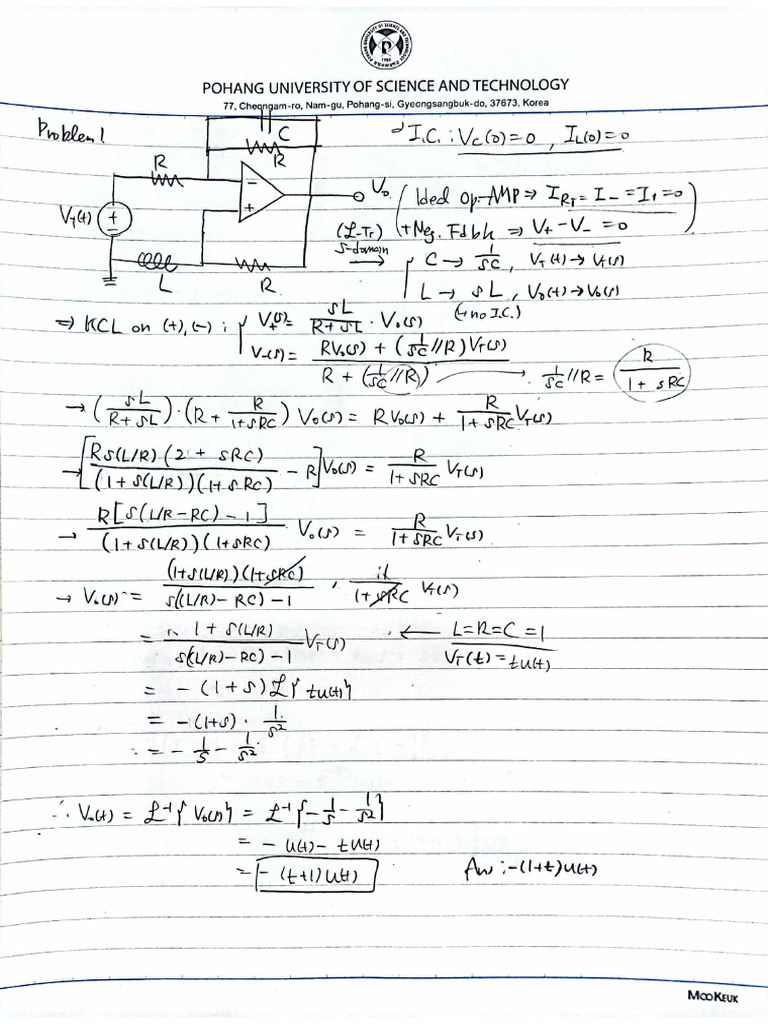 POHANG UNIVERSITY OF SCIENCE AND TECHNOLOGY
77, Cheongam-ro, Nam-gu, Pohang-si, Gyeongsangbuk-do, 37673, Korea
Problem 1
C
R
R
V_T(t)
L
R
V_o
I.C. : V_C(0)=0 , I_L(0)=0
(Ideal Op-AMP ⇒ I_{R_T} = I_- = I_+ = 0
+ Neg. Fdbk ⇒ V_+ - V_- = 0)
(L-Tr)
s-domain
→ { C → 1/sC , V_T(t) → V_T(s)
L → sL , V_o(t) → V_o(s)
(↳ no I.C.)
⇒ KCL on (+), (-) : { V_+(s) = sL/(R+sL) · V_o(s)
V_-(s) = (RV_o(s) + (1/sC // R)V_T(s)) / (R + (1/sC // R)) → 1/sC // R = R/(1+sRC)
→ (sL/(R+sL)) · (R + R/(1+sRC)) V_o(s) = RV_o(s) + R/(1+sRC) V_T(s)
→ [Rs(L/R)(2+sRC) / ((1+s(L/R))(1+sRC)) - R] V_o(s) = R/(1+sRC) V_T(s)
→ R[s(L/R-RC)-1] / ((1+s(L/R))(1+sRC)) · V_o(s) = R/(1+sRC) V_T(s)
→ V_o(s) = (1+s(L/R))(1+sRC) / (s((L/R)-RC)-1) · 1/(1+sRC) V_T(s)
= (1+s(L/R)) / (s((L/R)-RC)-1) V_T(s) ← L=R=C=1
V_T(t) = tu(t)
= -(1+s) L{tu(t)}
= -(1+s) · 1/s²
= -1/s - 1/s²
∴ V_o(t) = L⁻¹{V_o(s)} = L⁻¹{-1/s - 1/s²}
= -u(t) - tu(t)
= -(t+1)u(t)
Ans : -(1+t)u(t)
MOOKEUK